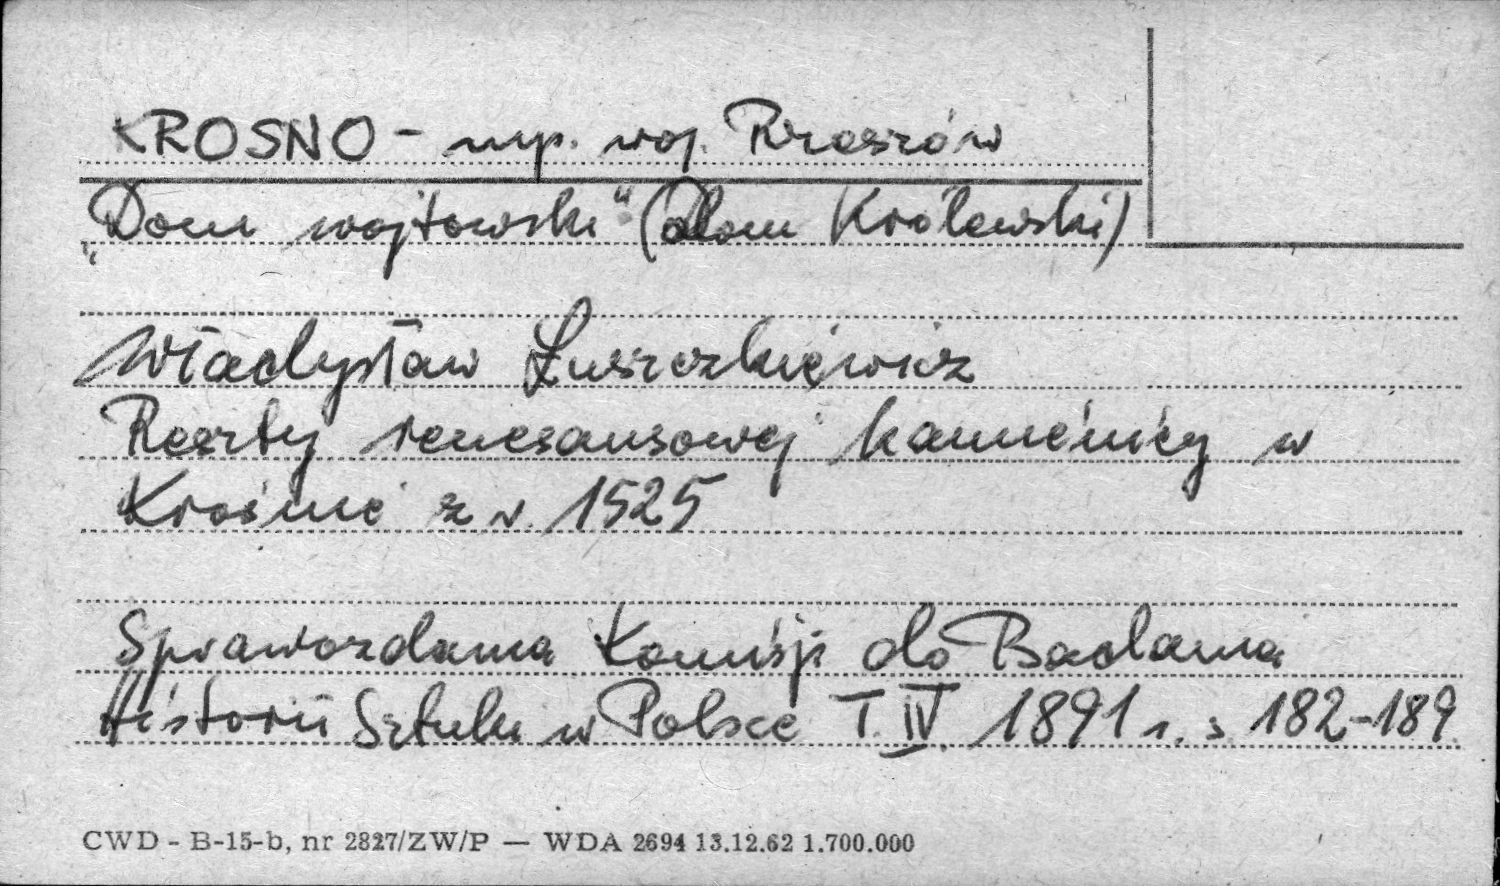 KROSNO - mp. woj. Rzeszów
„Dom wojtowski" (dom Królewski)
Władysław Łuszczkiewicz
Reszty renesansowej kamienicy w
Krośnie z r. 1525
Sprawozdania Komisji do Badania
Historii Sztuki w Polsce T. IV. 1891 r. s. 182-189
CWD - B-15-b, nr 2827/ZW/P — WDA 2694 13.12.62 1.700.000